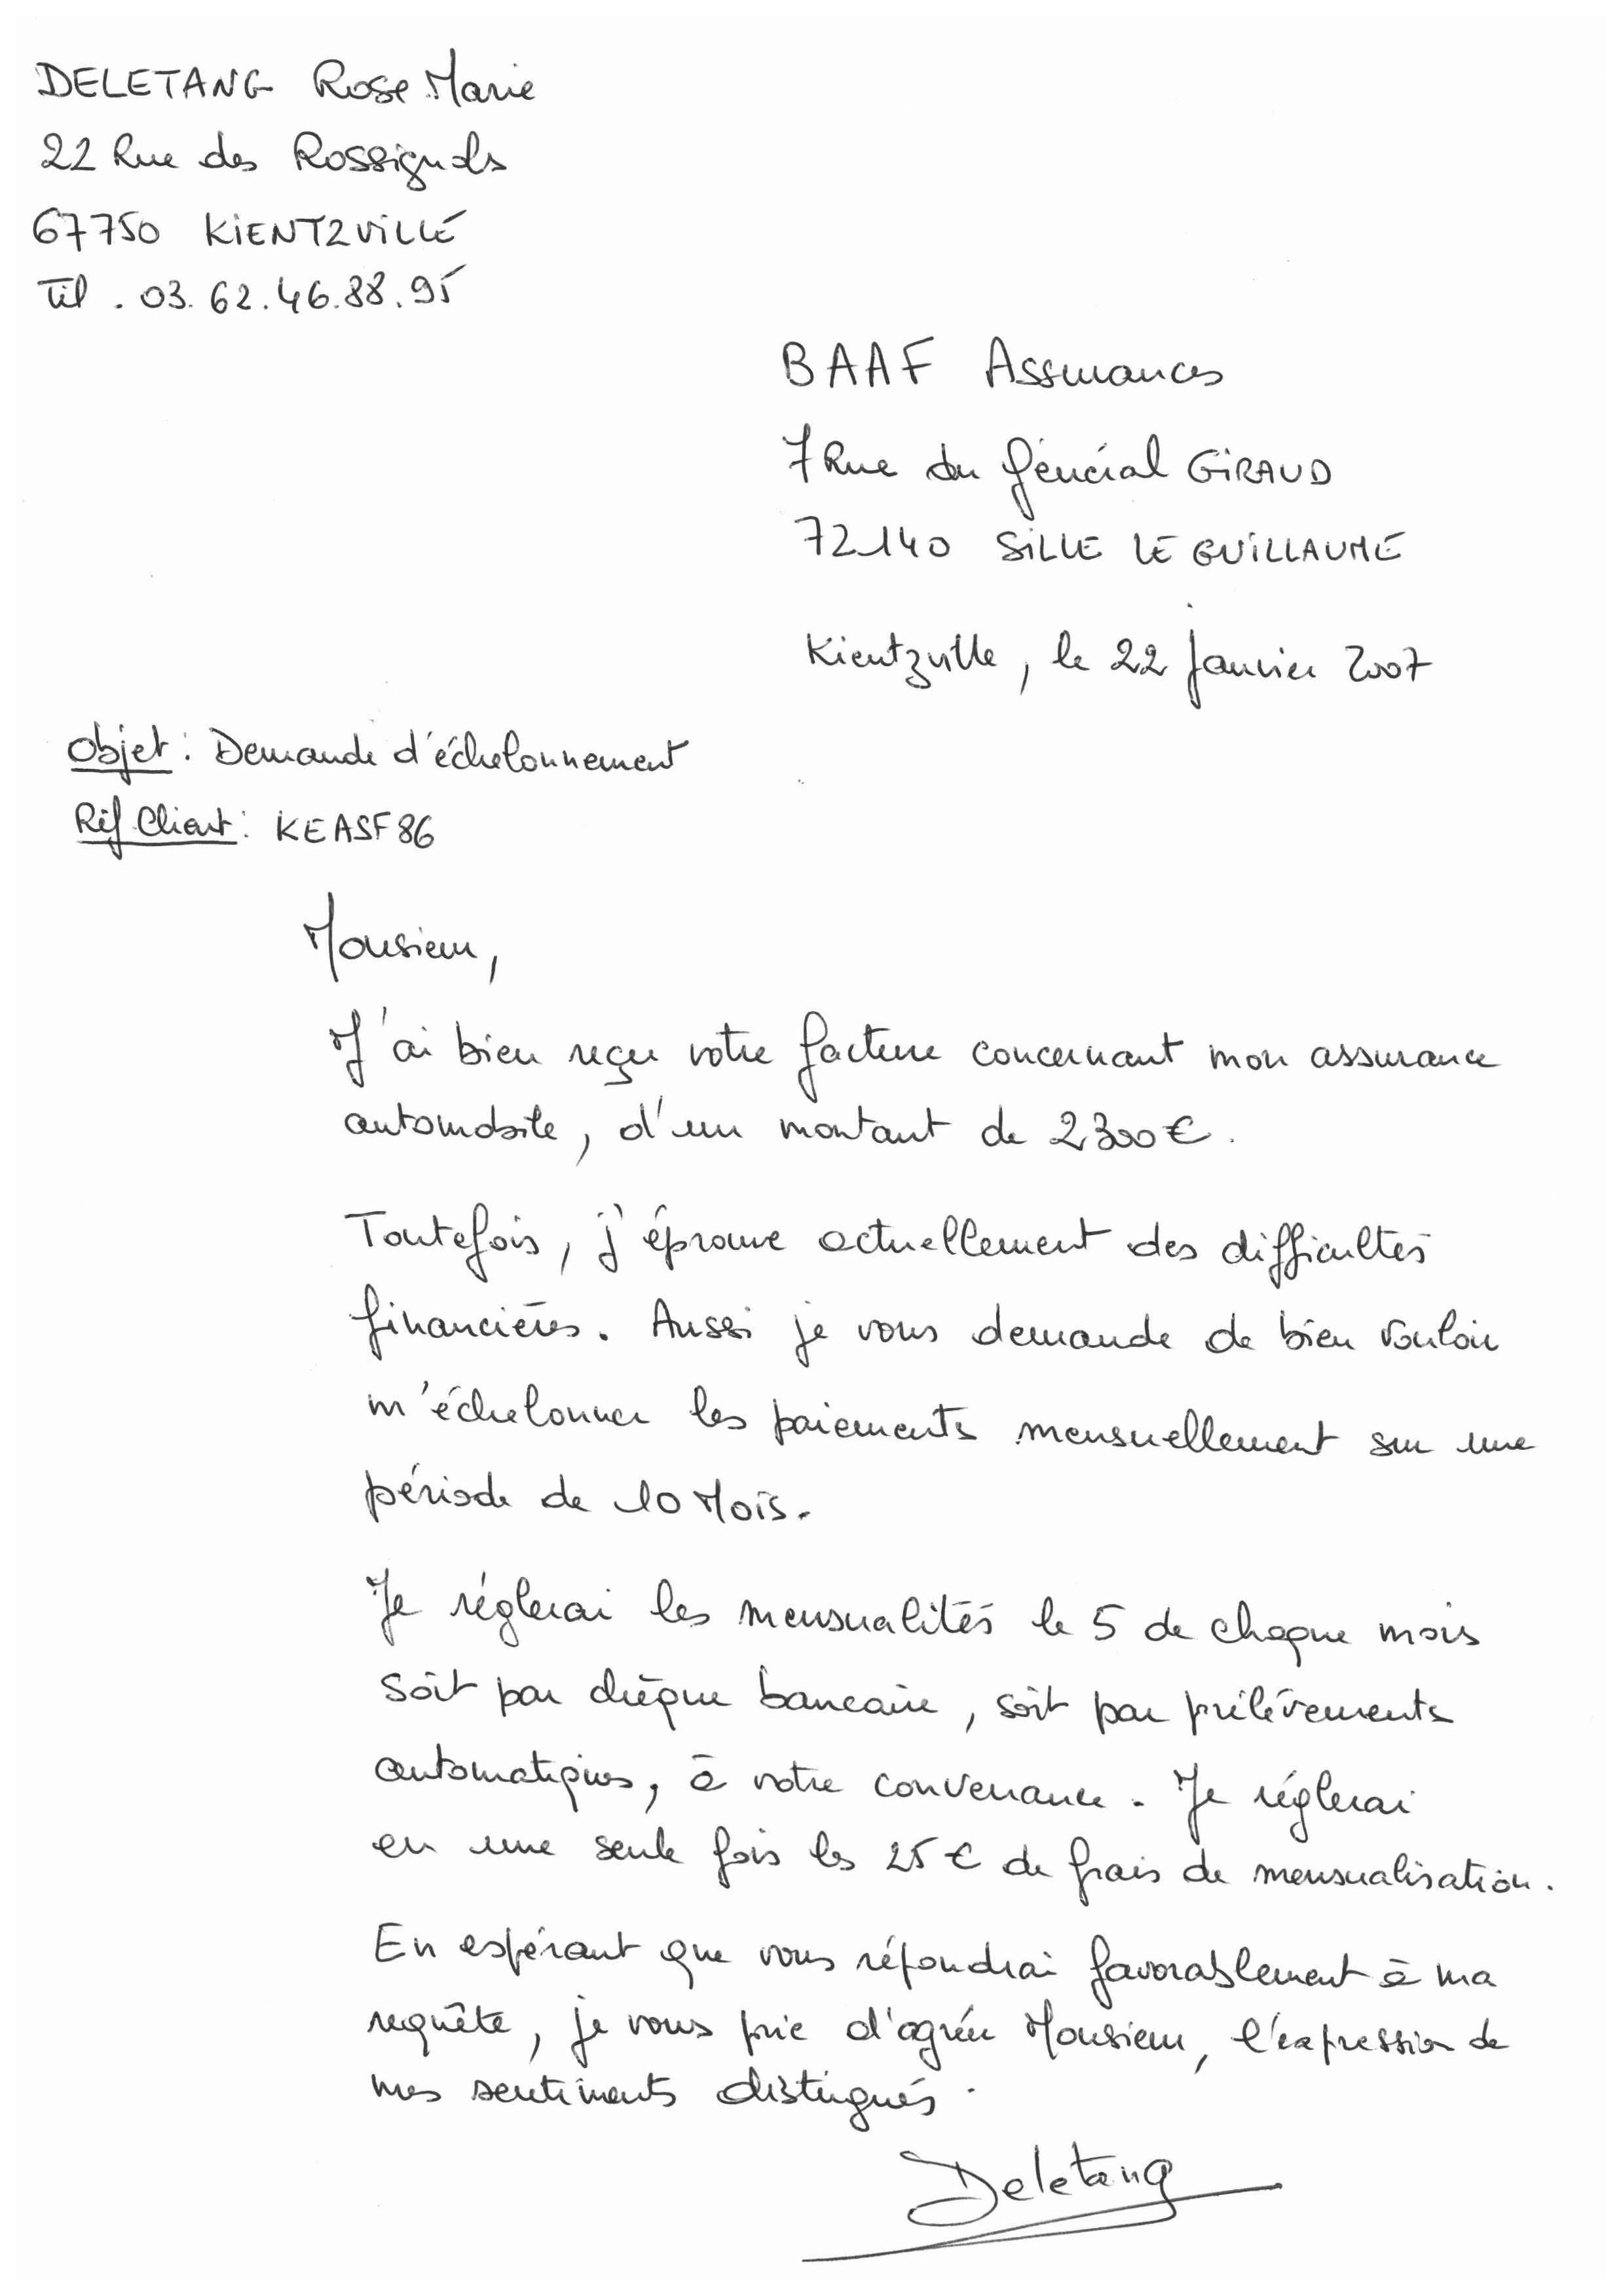 DELETANG Rose Marie
22 Rue des Rossignols
67750 KIENTZVILLE
Tél . 03.62.46.88.95
BAAF Assurances
7 Rue du général GIRAUD
72140 SILLE LE GUILLAUME
Kientzville, le 22 janvier 2007
Objet : Demande d'échelonnement
Réf Client : KEASF86
Monsieur,
J'ai bien reçu votre facture concernant mon assurance
automobile, d'un montant de 2300€.
Toutefois, j'éprouve actuellement des difficultés
financières. Aussi je vous demande de bien vouloir
m'échelonner les paiements mensuellement sur une
période de 10 Mois.
Je réglerai les mensualités le 5 de chaque mois
soit par chèque bancaire, soit par prélèvements
automatiques, à votre convenance. Je réglerai
en une seule fois les 25€ de frais de mensualisation.
En espérant que vous répondrai favorablement à ma
requête, je vous prie d'agréer Monsieur, l'expression de
mes sentiments distingués.
Deletang